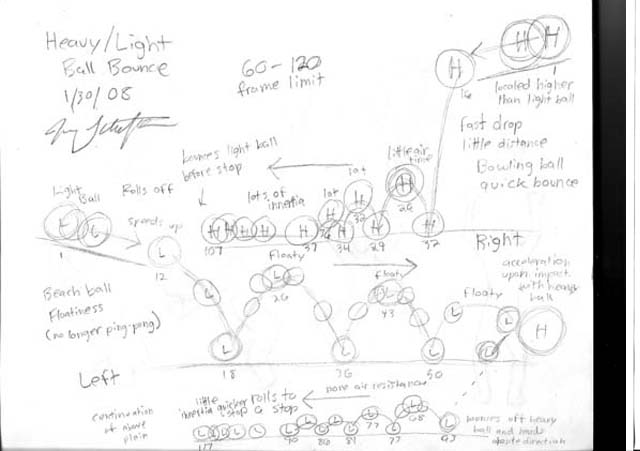 Heavy/Light
Ball Bounce
1/30/08
60-120
frame limit
H
H
H
1
16
located higher
than light ball
fast drop
little distance
Bowling ball
quick bounce
bounces light ball
before stop
little air
time
Light
Ball
Rolls off
speeds up
L
L
1
lots of
inertia
H H H H
107
H
37
H
34
H
H
29
H
26
H
32
Right
L
12
L
L
18
Floaty
L
26
L
36
floaty
L
43
L
50
L
Floaty
L
L
H
acceleration
upon impact
with heavier
ball
Beach ball
Floatiness
(no longer ping-pong)
Left
more air resistance
continuation
of above
plain
little
inertia quicker
rolls to
a stop
L L L L L
117
L
90
L
86
L
81
L
77
L
77
L
68
L
bounces off heavy
ball and heads
opposite direction